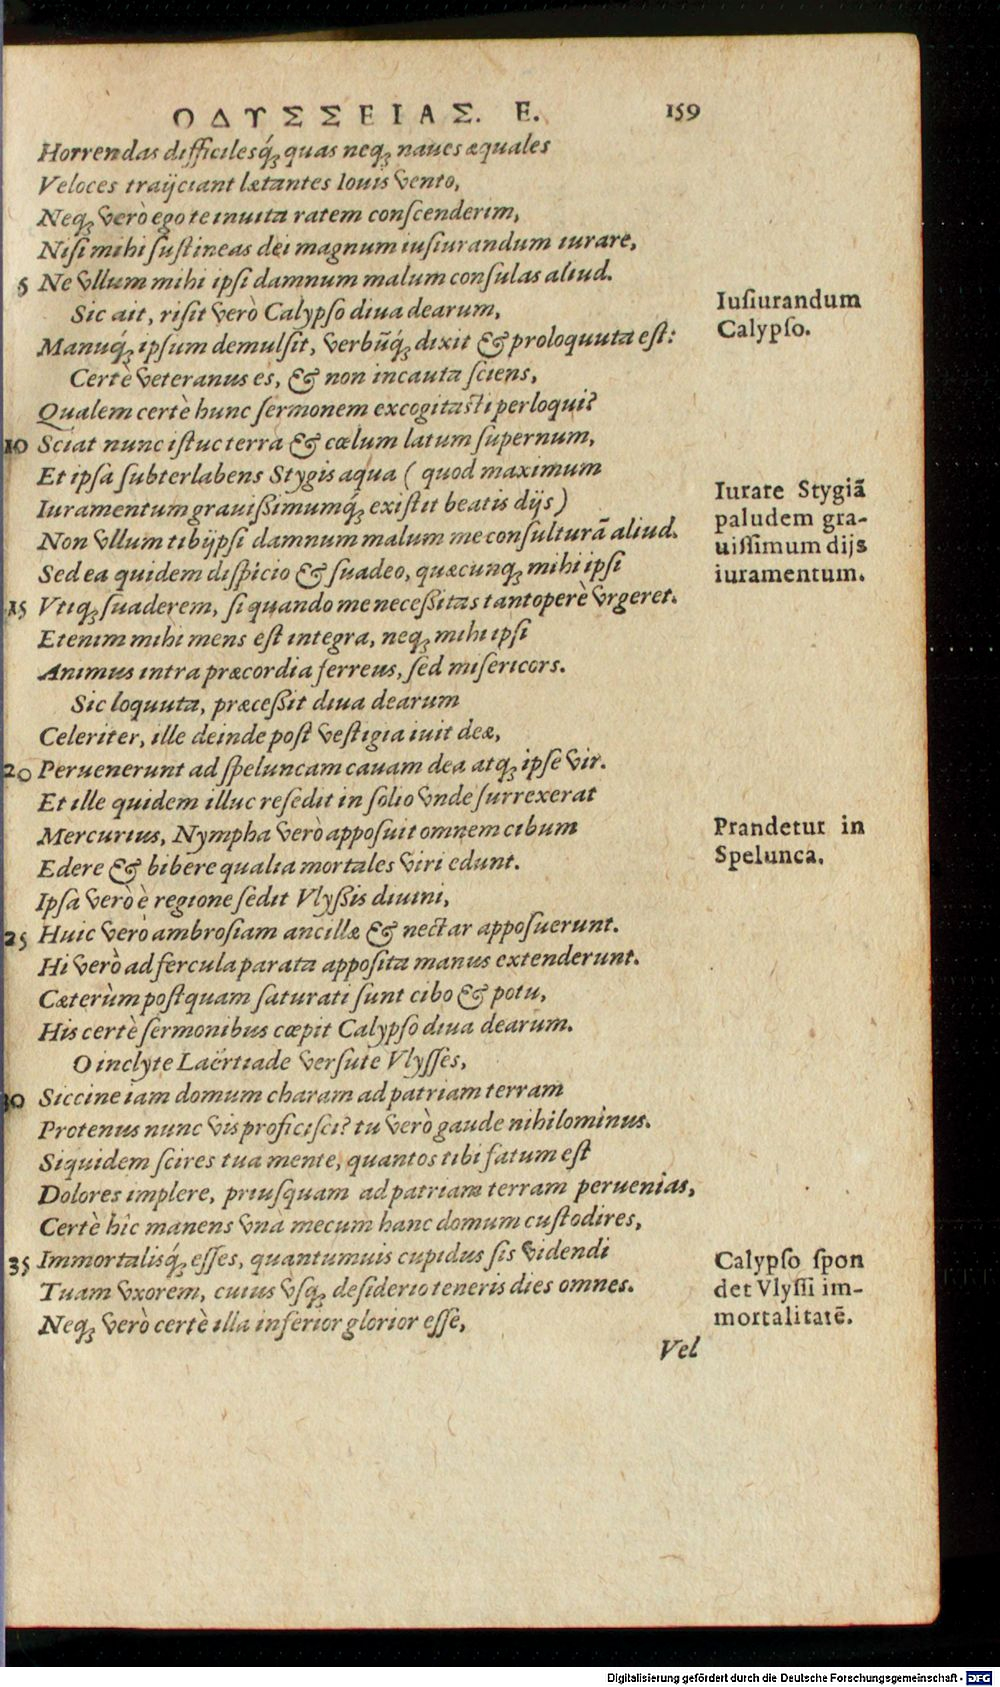 ΟΔΥΣΣΕΙΑΣ. Ε. 159
Horrendas difficilesq́ꝫ quas neqꝫ naues æquales
Veloces traijciant lætantes Iouis vento,
Neqꝫ verò ego te inuita ratem conscenderim,
Nisi mihi sustineas dei magnum iusiurandum iurare,
5 Ne vllum mihi ipsi damnum malum consulas aliud.
Sic ait, risit verò Calypso diua dearum,
Iusiurandum
Calypso.
Manuq́ꝫ ipsum demulsit, verbũq́ꝫ dixit & proloquuta est:
Certè veteranus es, & non incauta sciens,
Qualem certè hunc sermonem excogitasti perloqui?
10 Sciat nunc istuc terra & cœlum latum supernum,
Et ipsa subterlabens Stygis aqua ( quod maximum
Iuramentum grauissimumq́ꝫ existit beatis dijs )
Iurare Stygiã
paludem gra-
uissimum dijs
iuramentum.
Non vllum tibijpsi damnum malum me consulturã aliud.
Sed ea quidem dispicio & suadeo, quæcunqꝫ mihi ipsi
15 Vtiqꝫ suaderem, si quando me necessitas tantoperè vrgeret.
Etenim mihi mens est integra, neqꝫ mihi ipsi
Animus intra præcordia ferreus, sed misericors.
Sic loquuta, præcessit diua dearum
Celeriter, ille deinde post vestigia iuit deæ,
20 Peruenerunt ad speluncam cauam dea atqꝫ ipse vir.
Et ille quidem illuc resedit in solio vnde surrexerat
Mercurius, Nympha verò apposuit omnem cibum
Prandetur in
Spelunca.
Edere & bibere qualia mortales viri edunt.
Ipsa verò è regione sedit Vlyssis diuini,
25 Huic verò ambrosiam ancillæ & nectar apposuerunt.
Hi verò ad fercula parata apposita manus extenderunt.
Cæterùm postquam saturati sunt cibo & potu,
His certè sermonibus cœpit Calypso diua dearum.
O inclyte Laërtiade versute Vlysses,
30 Siccine iam domum charam ad patriam terram
Protenus nunc vis proficisci? tu verò gaude nihilominus.
Siquidem scires tua mente, quantos tibi fatum est
Dolores implere, priusquam ad patriam terram peruenias,
Certè hîc manens vnà mecum hanc domum custodires,
35 Immortalisq́ꝫ esses, quantumuis cupidus sis videndi
Tuam vxorem, cuius vsqꝫ desiderio teneris dies omnes.
Neqꝫ verò certè illa inferior glorior esse,
Calypso spon
det Vlyssi im-
mortalitatẽ.
Vel
Digitalisierung gefördert durch die Deutsche Forschungsgemeinschaft - DFG